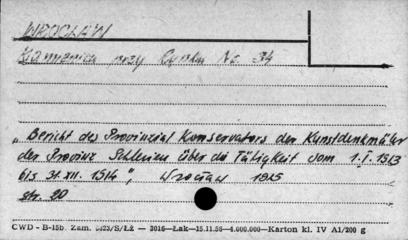 WROCŁAW
Kamienica przy Rynku Nr. 34
„Bericht des Provinzial Konservators der Kunstdenkmäler
der Provinz Schlesien über die Tätigkeit vom 1.I.1913
bis 31.XII.1914", Wrocław 1915
str. 20
CWD - B-15b. Zam. /S/ŁŻ — 3016—Łak—15.11.56—4.000.000—Karton kl. IV A1/200 g